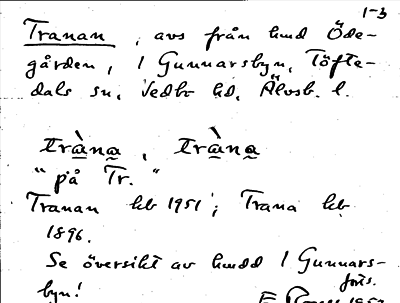 1-3
Tranan, avs från hmd Öde-
gården, 1 Gunnarsbyn, Töfte-
dals sn, Vedbo hd, Älvsb. l.
tràna, tràna
"på Tr."
Tranan kb 1951; Trana kb
1896.
Se översikt av hmdd 1 Gunnars-
byn! forts.
1952